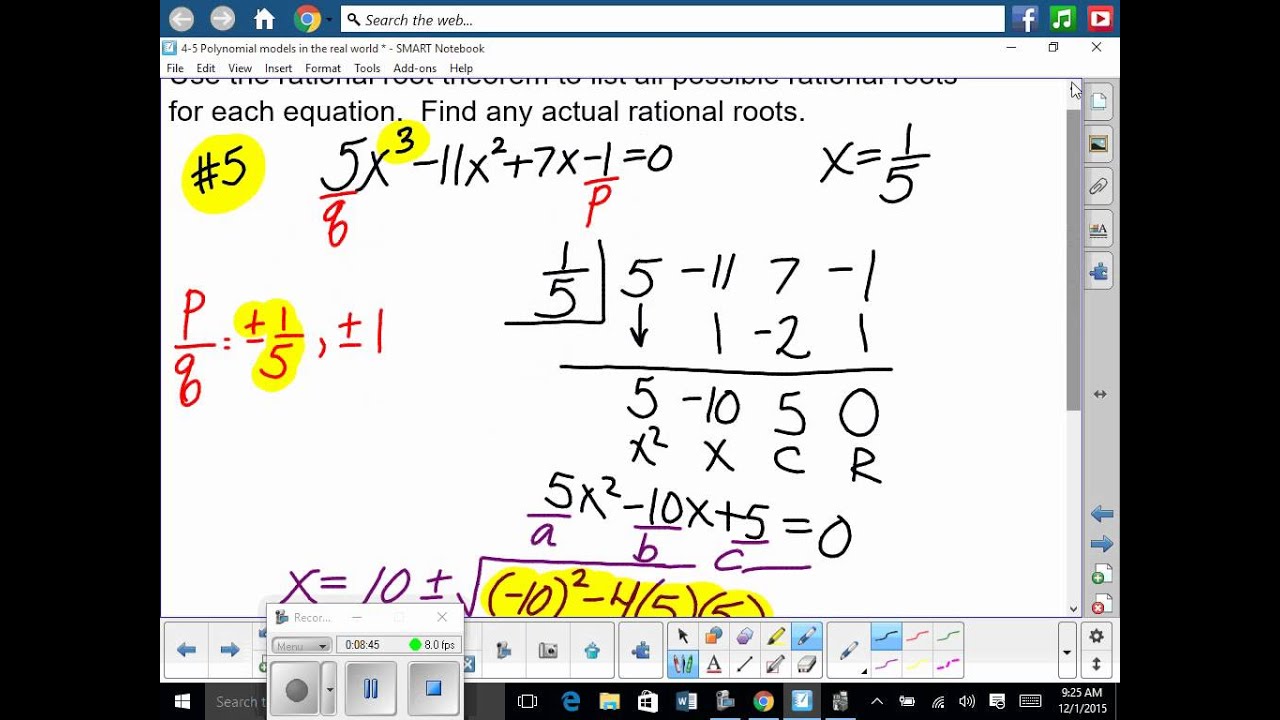 Search the web...
4-5 Polynomial models in the real world * - SMART Notebook
File Edit View Insert Format Tools Add-ons Help
Use the rational root theorem to list all possible rational roots
for each equation. Find any actual rational roots.
#5 5x³-11x²+7x-1=0 x=1/5
q p
1/5 5 -11 7 -1
p/q: ±1/5, ±1
↓ 1 -2 1
5 -10 5 0
x² x C R
5x²-10x+5=0
a b c
x= 10 ± √(-10)²-4(5)(5)
Recor...
Menu 0:08:45 8.0 fps
A
Search t
W
9:25 AM
12/1/2015